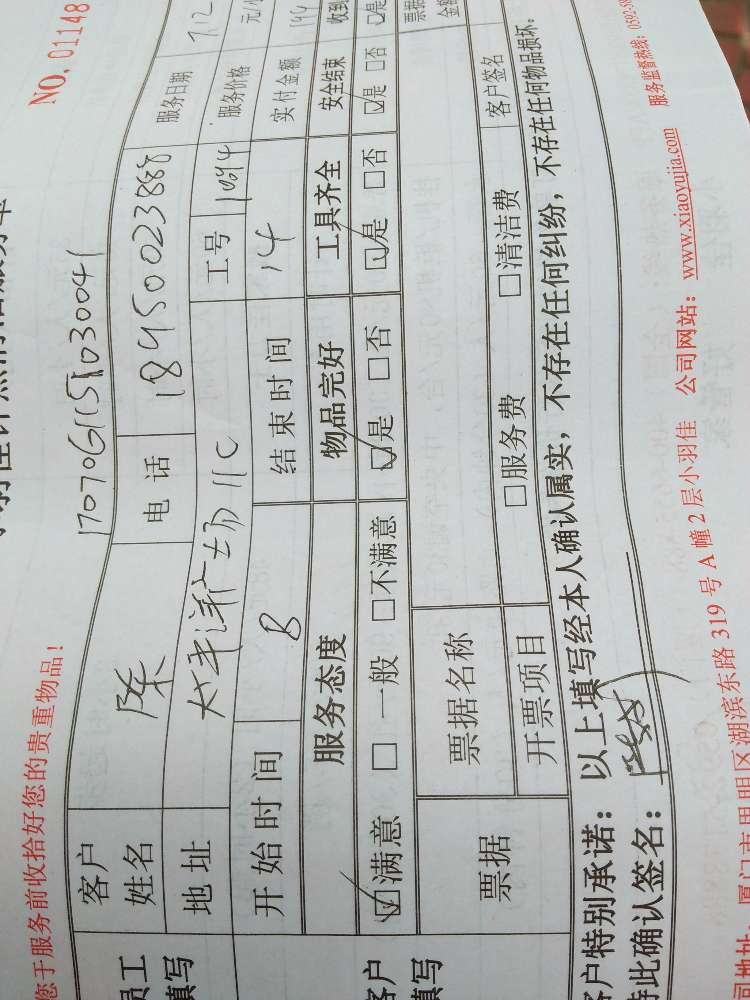 您于服务前收拾好您的贵重物品！
NO. 01148
17070611515030041
员工
填写
客户
姓名
陈
电 话
18450023888
服务日期
7.12
地址
太平洋广场 11C
工号
1094
服务价格
元/
开始时间
8
结束时间
14
实付金额
144
客户
填写
服务态度
物品完好
工具齐全
安全结束
收到
☑满意 □一般 □不满意
☑是 □否
☑是 □否
☑是 □否
☑是
票据
票据名称
票据
金额
开票项目
□服务费
□清洁费
客户签名
客户特别承诺：以上填写经本人确认属实，不存在任何纠纷，不存在任何物品损坏。
特此确认签名：
司地址：厦门市思明区湖滨东路 319 号 A 幢 2 层小羽佳 公司网站：www.xiaoyujia.com 服务监督热线：0592-58